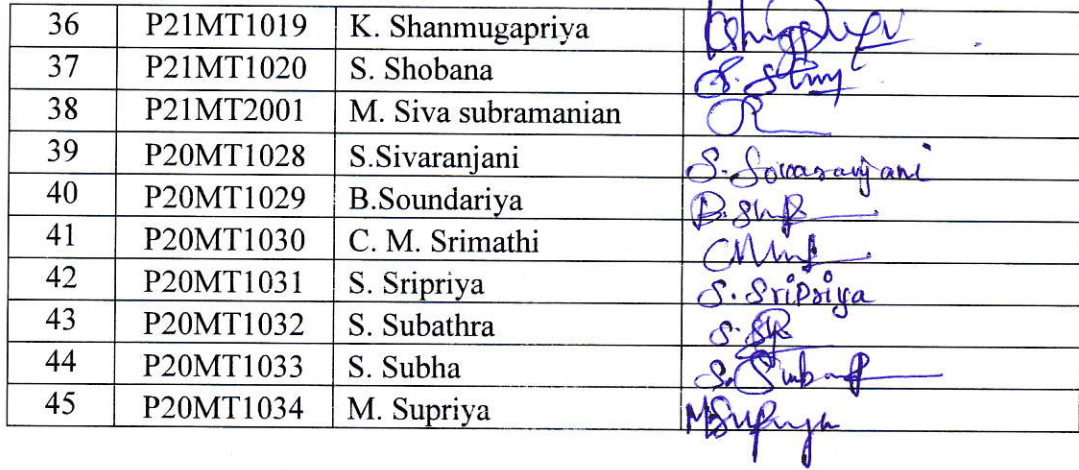 36 P21MT1019 K. Shanmugapriya
37 P21MT1020 S. Shobana
38 P21MT2001 M. Siva subramanian
39 P20MT1028 S.Sivaranjani S. Sivaranjani
40 P20MT1029 B.Soundariya
41 P20MT1030 C. M. Srimathi
42 P20MT1031 S. Sripriya S. Sripriya
43 P20MT1032 S. Subathra
44 P20MT1033 S. Subha
45 P20MT1034 M. Supriya M Supriya